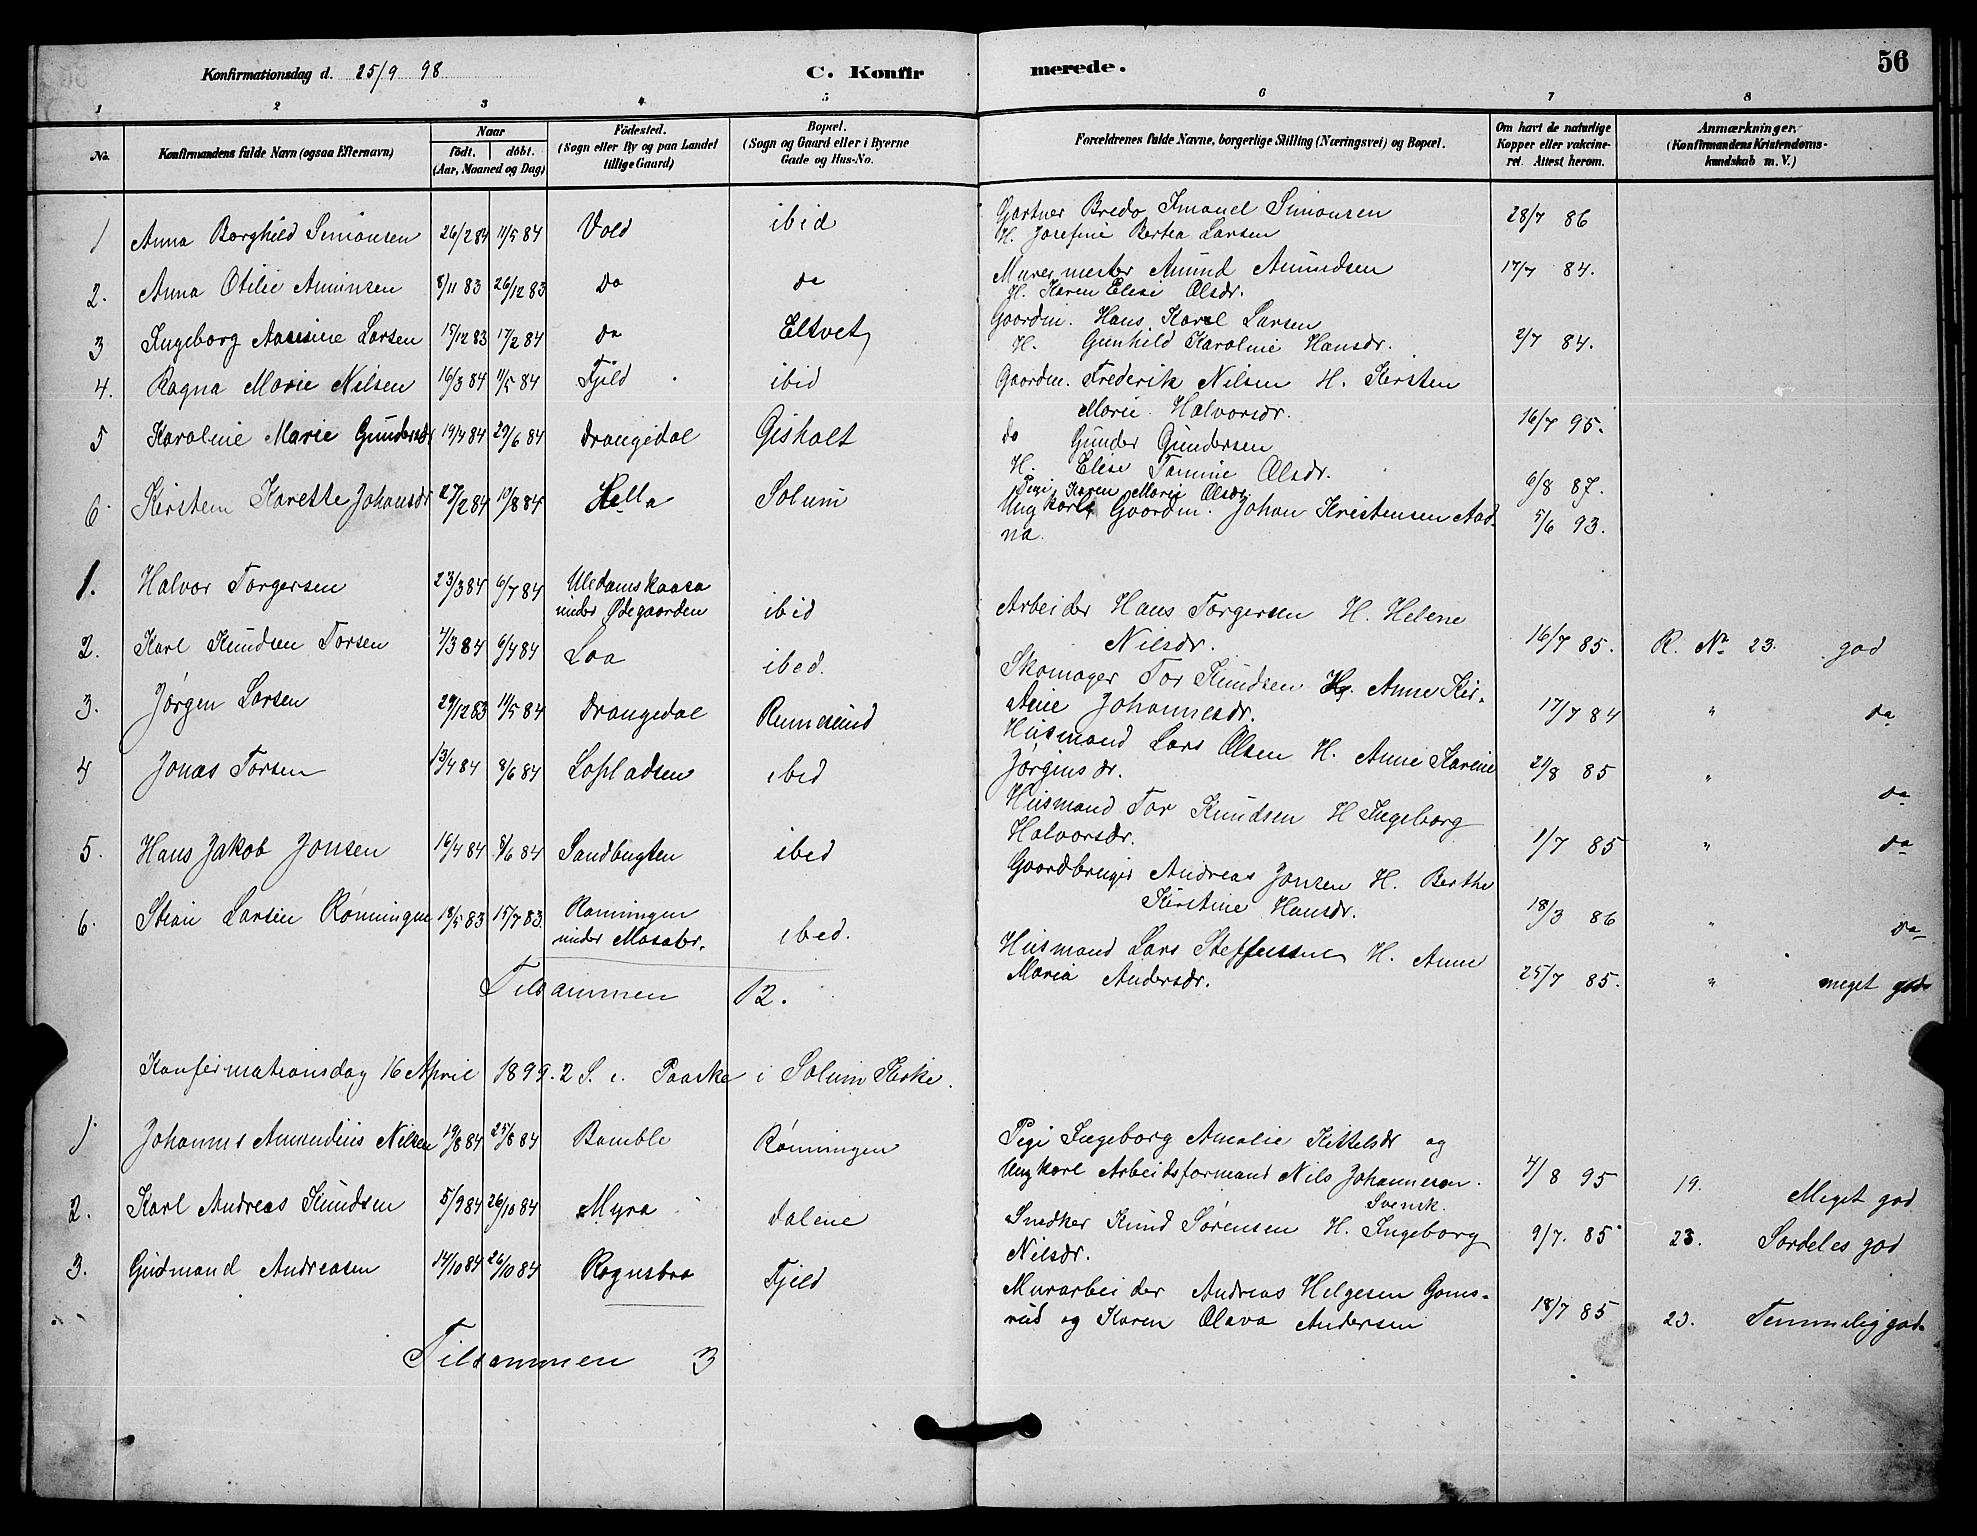 Konfirmationsdag d. 25/9 98
C. Konfirmerede.
56
1 2 3 4 5 6 7 8
No.
Konfirmandens fulde Navn (ogsaa Efternavn)
Naar
født. døbt.
(Aar, Maaned og Dag)
Fødested.
(Sogn eller By og paa Landet
tillige Gaard)
Bopæl.
(Sogn og Gaard eller i Byerne
Gade og Hus-No.
Forældrenes fulde Navne, borgerlige Stilling (Næringsvei) og Bopæl.
Om havt de naturlige
Kopper eller vakcine-
ret. Attest herom.
Anmærkninger.
(Konfirmandens Kristendoms-
kundskab m. V.)
1 Anna Borghild Simonsen 26/2 84 11/5 84 Vold ibid
Gartner Bredo Imanel Simonsen 28/7 86
H. Josefine Bertea Larsen
2. Anna Otilie Amunsen 8/11 83 26/12 83 do do
Murermester Amund Amundsen 17/7 84.
H. Karen Elise Olsdr.
3 Ingeborg Aasine Larsen 15/12 83 17/2 84 do Eltvet
Gaardm. Hans Karel Larsen
H. Gunhild Karoline Hansdr. 2/7 84.
4. Ragna Marie Nilsen 16/3 84 11/5 84 Fjild ibid
Gaardm. Frederik Nilsen H. Kersten
Marie Halvorsdr. 16/7 95.
5 Karoline Marie Gundersdr 19/4 84 29/6 84 Drangedal Gisholt
do Gunder Gundersen
H. Elise Tomine Olsdr. 6/8 87.
6. Kirsten Karette Johansdr 27/2 84 10/8 84 Hella Solum
Pigi Karen Marie Olsdr
Ungkarl Gaardm. Johan Kristensen Aad- 5/6 93.
na.
1. Halvor Torgersen 23/3 84 6/7 84 Uledamskaasa
under Ødegaarden ibid
Arbeider Hans Torgersen H. Helene
Nilsdr. 16/7 85. R. No 23. god
2. Karl Knudsen Torsen 4/3 84 6/4 84 Loa ibed.
Skomager Tor Knudsen H. Anne Kir-
stine Johannesdr. 17/7 84 " do
3. Jørgen Larsen 29/12 83 11/5 84 Drangedal Rennesund
Husmand Lars Olsen H. Anne Karine
Jørginsdr. 21/8 85 " do
4 Jonas Torsen 13/4 84 8/6 84 Lofsladsen ibed
Husmand Tor Knudsen H Ingeborg
Halvorsdr. 1/7 85 " do
5. Hans Jakob Jonsen 16/4 84 8/6 84 Sandbugten ibed
Gaardbruger Andreas Jonsen H. Berthe
Kirstine Hansdr. 18/3 86 " do
6. Stian Larsen Rønningen 18/5 83 15/7 83 Rønningen
under Masabr. ibed.
Husmand Lars Steffensen H. Anne
Maria Andersdr. 25/7 85. " meget god
Tilsammen 12.
Konfirmationsdag 16 April 1899. 2 S. e. Paaske i Solum Kirke.
1 Johannes Amundius Nilsen 19/8 84 25/8 84 Bamble Rønningen
Pigi Ingeborg Amalie Kittelsdr og
Ungkarl Arbeidsformand Nils Johannesen. 4/8 95 19. Meget god
Svensk.
2. Karl Andreas Knudsen 5/9 84 26/10 84 Myra Dalene
Snedker Knud Sørensen H. Ingeborg 9/7. 85 23. Særdeles god
Nilsdr.
3. Gudmand Andreasen 14/10 84 26/10 84 Rognsbro Fjeld
Murarbeider Andreas Helgesen Goms-
rud og Karen Olava Andersen 18/7 85 23. Temmelig god
Tilsammen 3